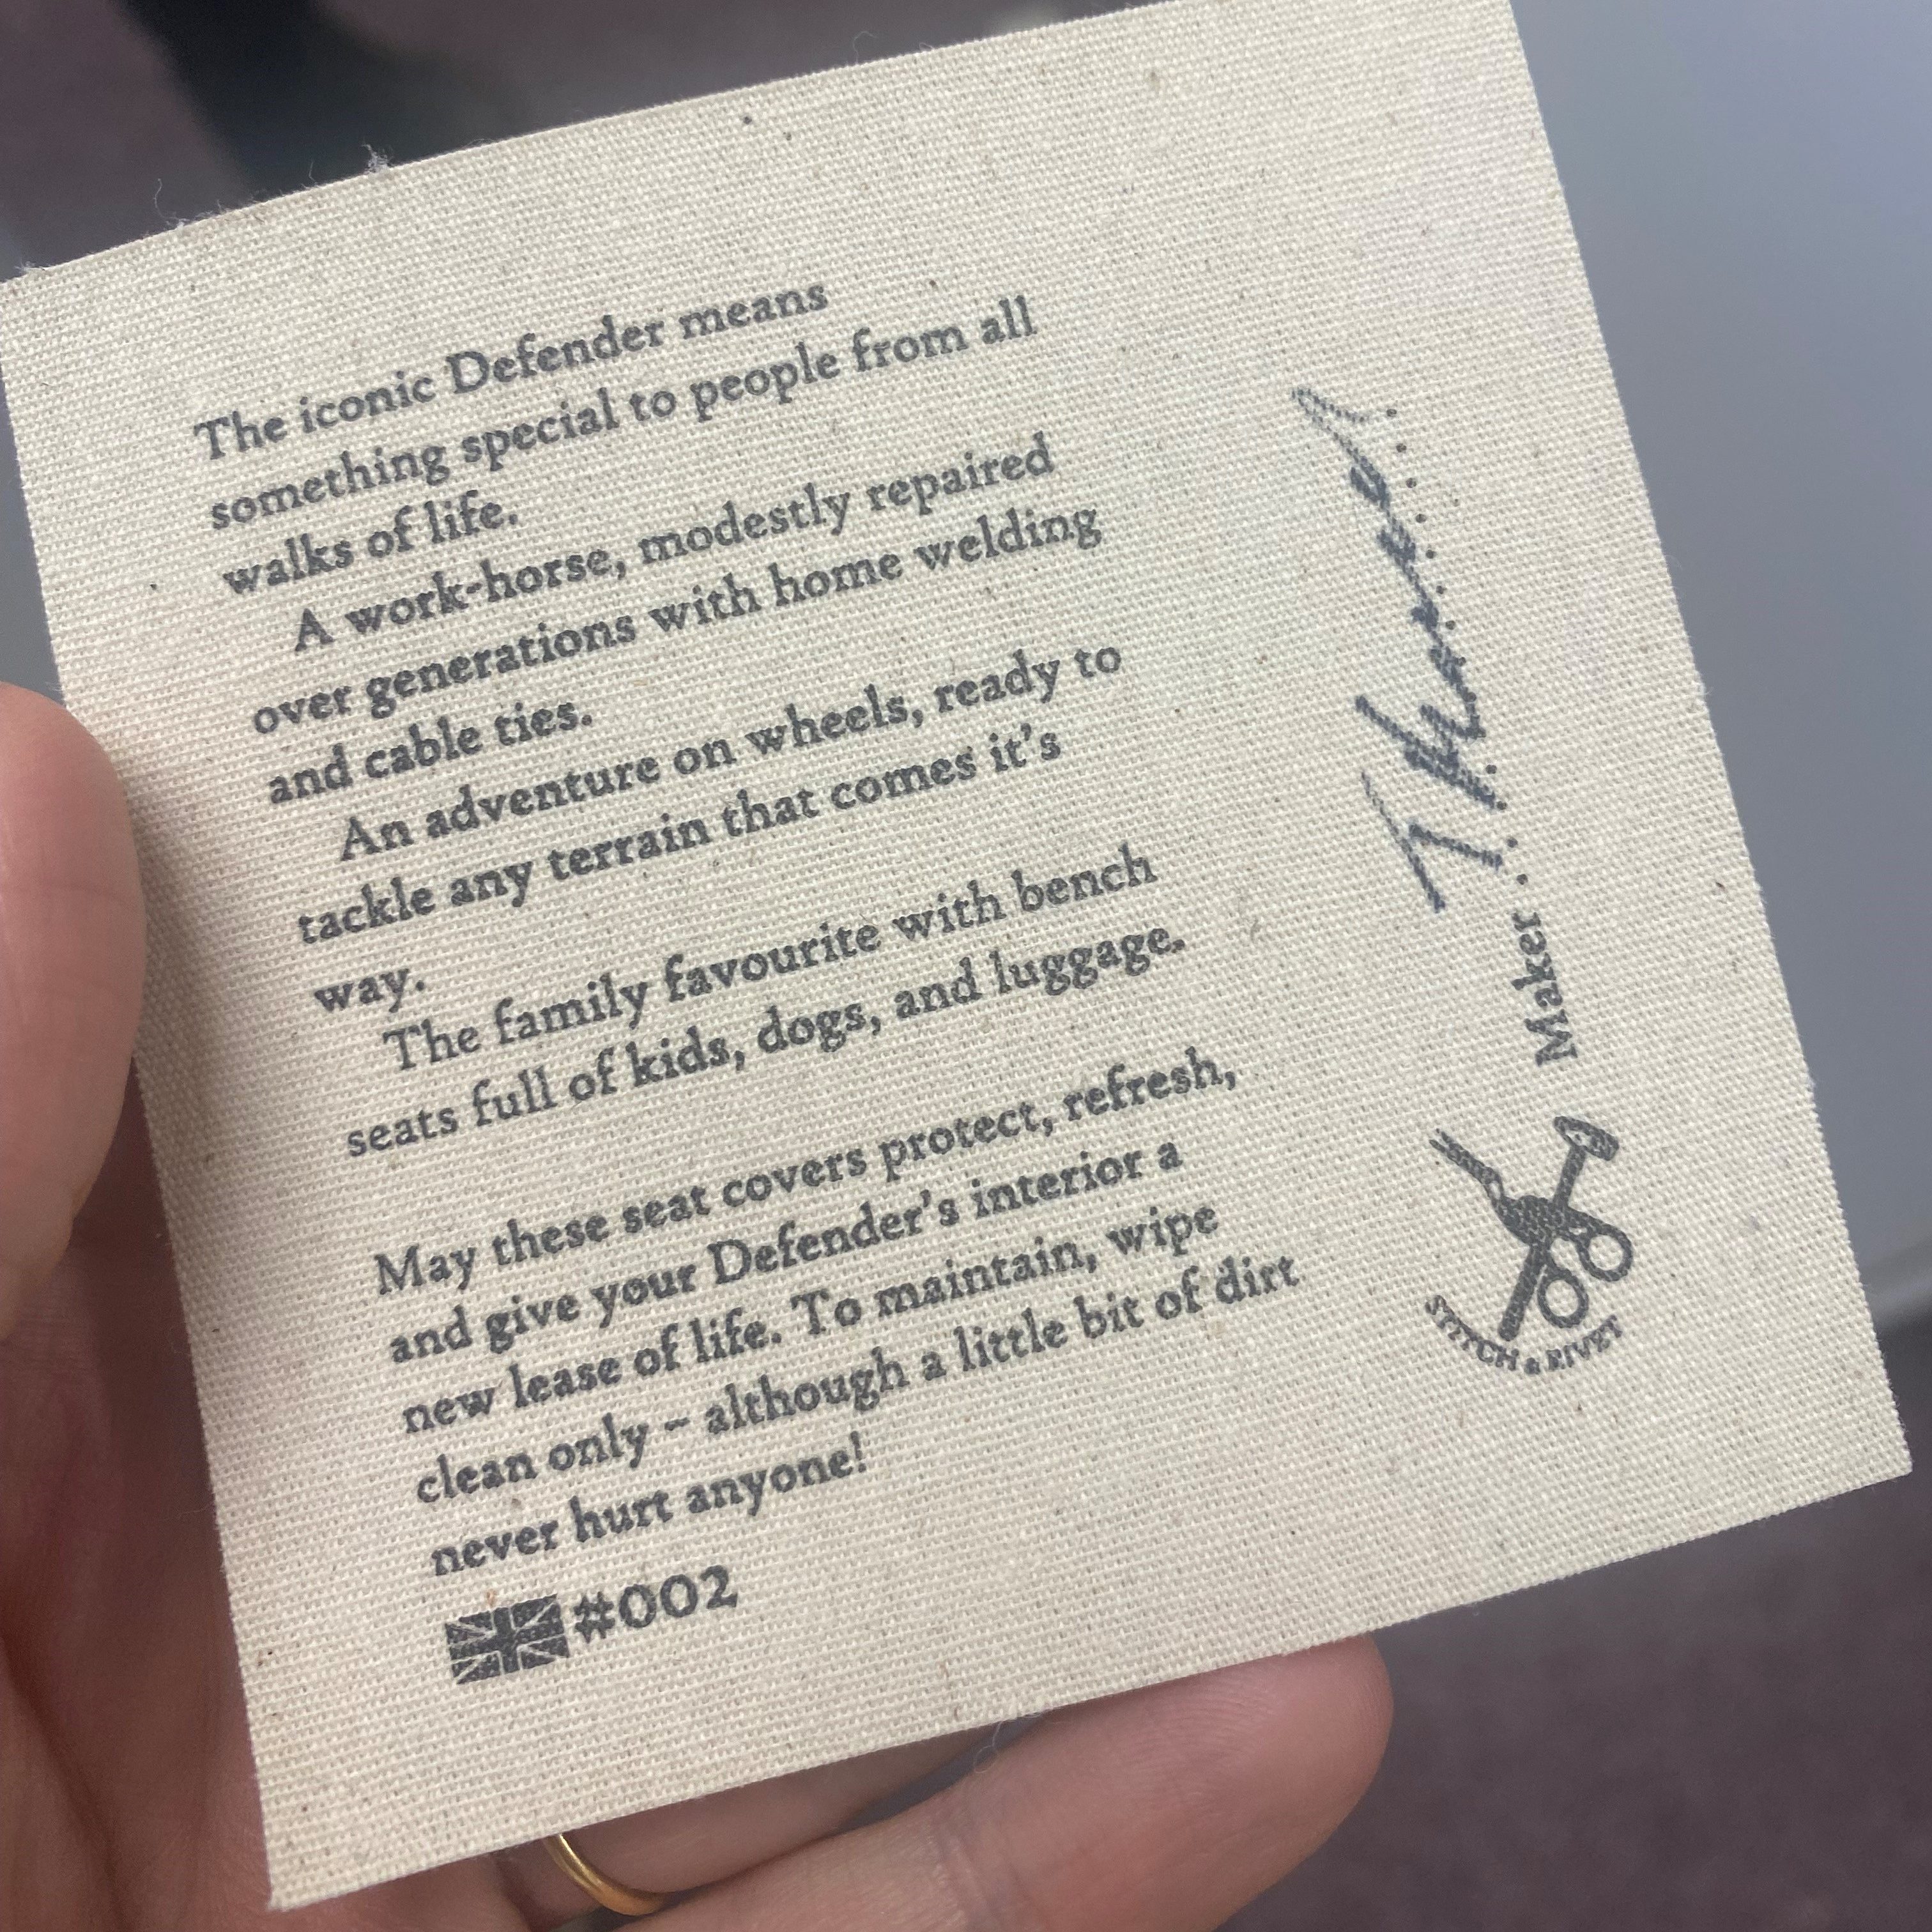 The iconic Defender means
something special to people from all
walks of life.
A work-horse, modestly repaired
over generations with home welding
and cable ties.
An adventure on wheels, ready to
tackle any terrain that comes it's
way.
The family favourite with bench
seats full of kids, dogs, and luggage.
May these seat covers protect, refresh,
and give your Defender's interior a
new lease of life. To maintain, wipe
clean only – although a little bit of dirt
never hurt anyone!
#002
Maker
STITCH & RIVET